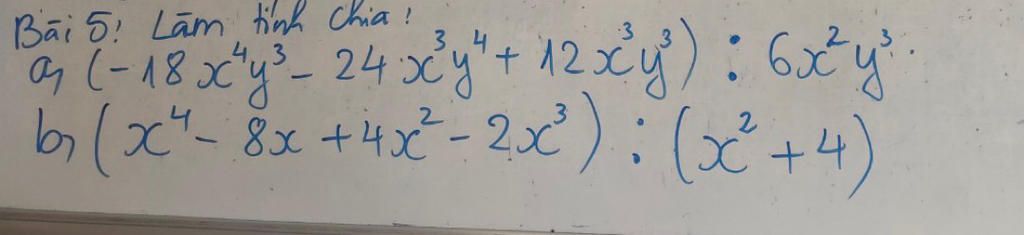 Bài 5: Làm tính chia:
a, (-18x⁴y³ - 24x³y⁴ + 12x³y³) : 6x²y³.
b, (x⁴ - 8x + 4x² - 2x³) : (x² + 4)